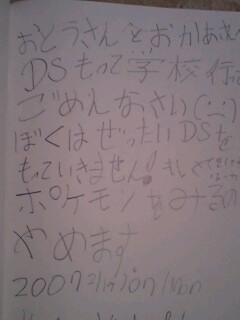 おとうさんとおかあさん
DSもって学校行っ
ごめんなさい(:;)
ぼくはぜったいDSを
もっていきません!もし
ポケモンをみるの
やめます
2007